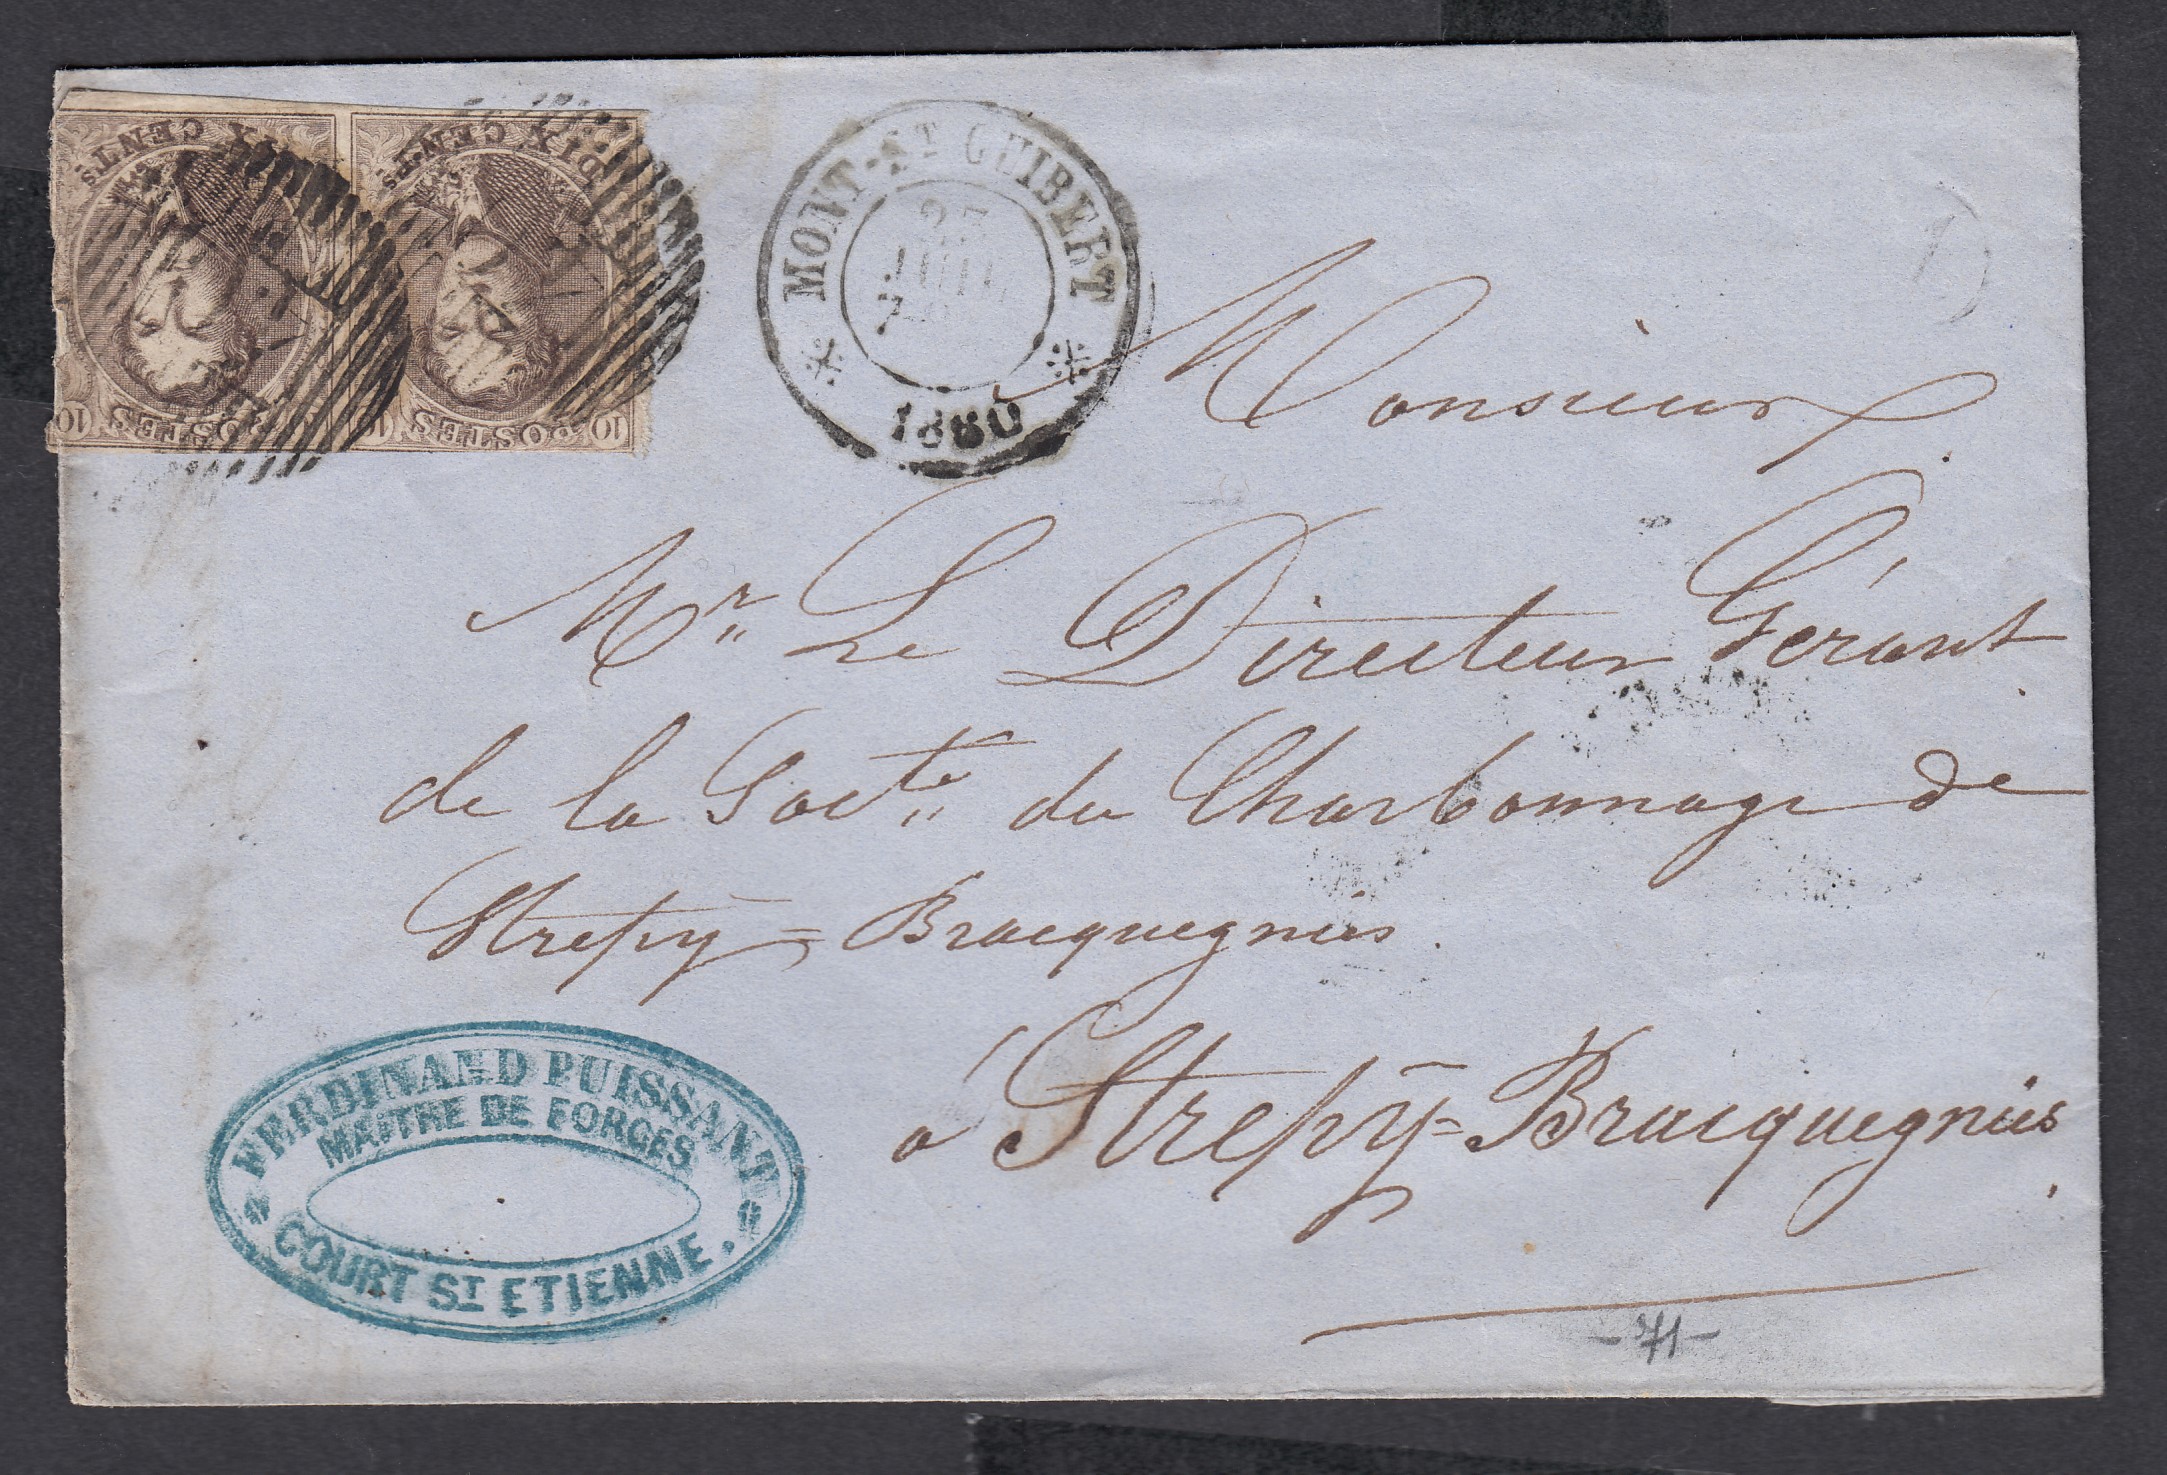 DIX CENTS
POSTES
10
DIX CENTS
POSTES
10
MONT-ST GUIBERT
27
JUIL
1860
Monsieur
Mr. Le Directeur Gérant
de la Socte. du Charbonnage de
Strepÿ=Bracquegnies.
à Strepÿ=Bracquegnies.
FERDINAND PUISSANT
MAÎTRE DE FORGES
COURT ST ETIENNE.
-71-